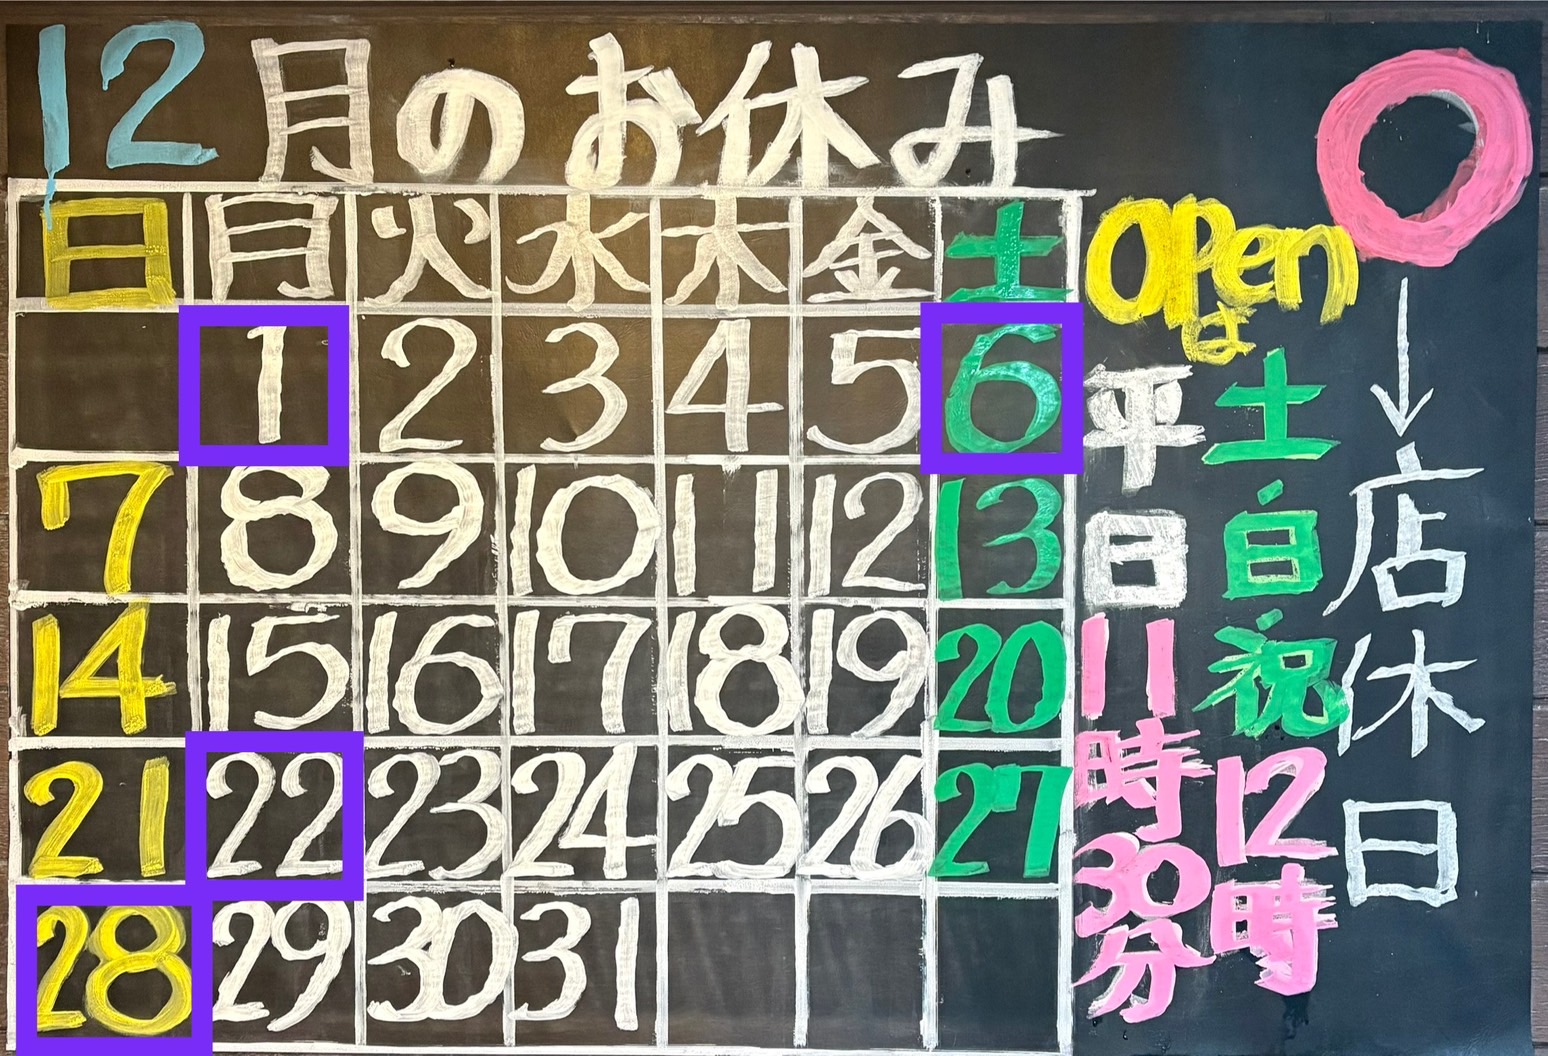 12月のお休み
日 月 火 水 木 金 土
1 2 3 4 5 6
7 8 9 10 11 12 13
14 15 16 17 18 19 20
21 22 23 24 25 26 27
28 29 30 31
店休日
openは
土日祝
12時
平日
11時30分